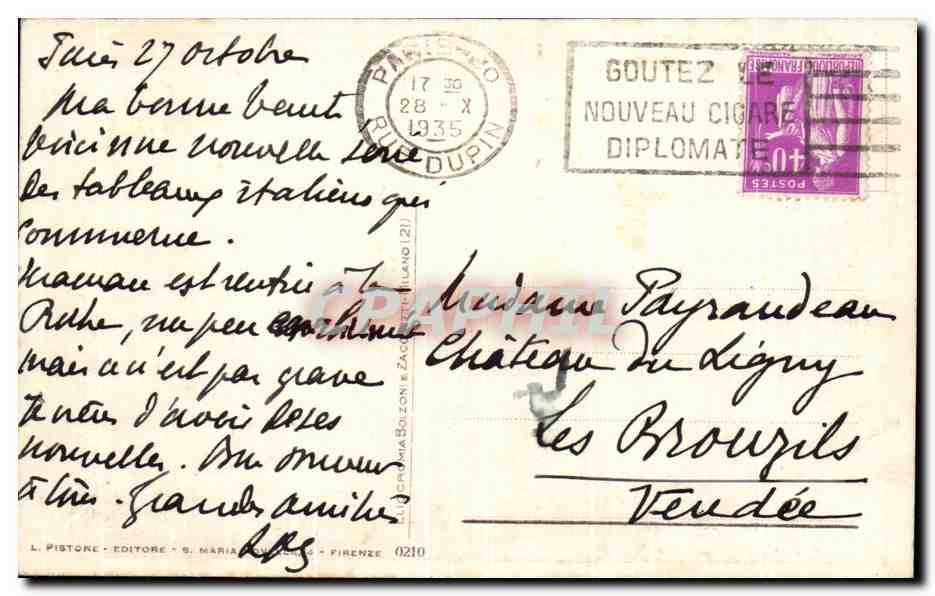 Paris 27 octobre
Ma bonne
Voici une nouvelle série
des tableaux italiens qui
commence.
Maman est rentrée à la
Roche, un peu enrhumée
mais ce n'est pas grave
Je viens d'avoir de ses
nouvelles. Bon
à tous. Grandes amitiés
PARIS
17 30
28 - X
1935
RUE DUPIN
GOUTEZ LE
NOUVEAU CIGARE
DIPLOMATE
REPUBLIQUE FRANÇAISE
POSTES
40c
Madame Payraudeau
Château du Ligny
Les Brouzils
Vendée
ELIOCROMIA BOLZONI E ZACCHETTI - MILANO (21)
CPAPHIL
L. PISTONE - EDITORE - S. MARIA NOVELLA, 4 - FIRENZE 0210